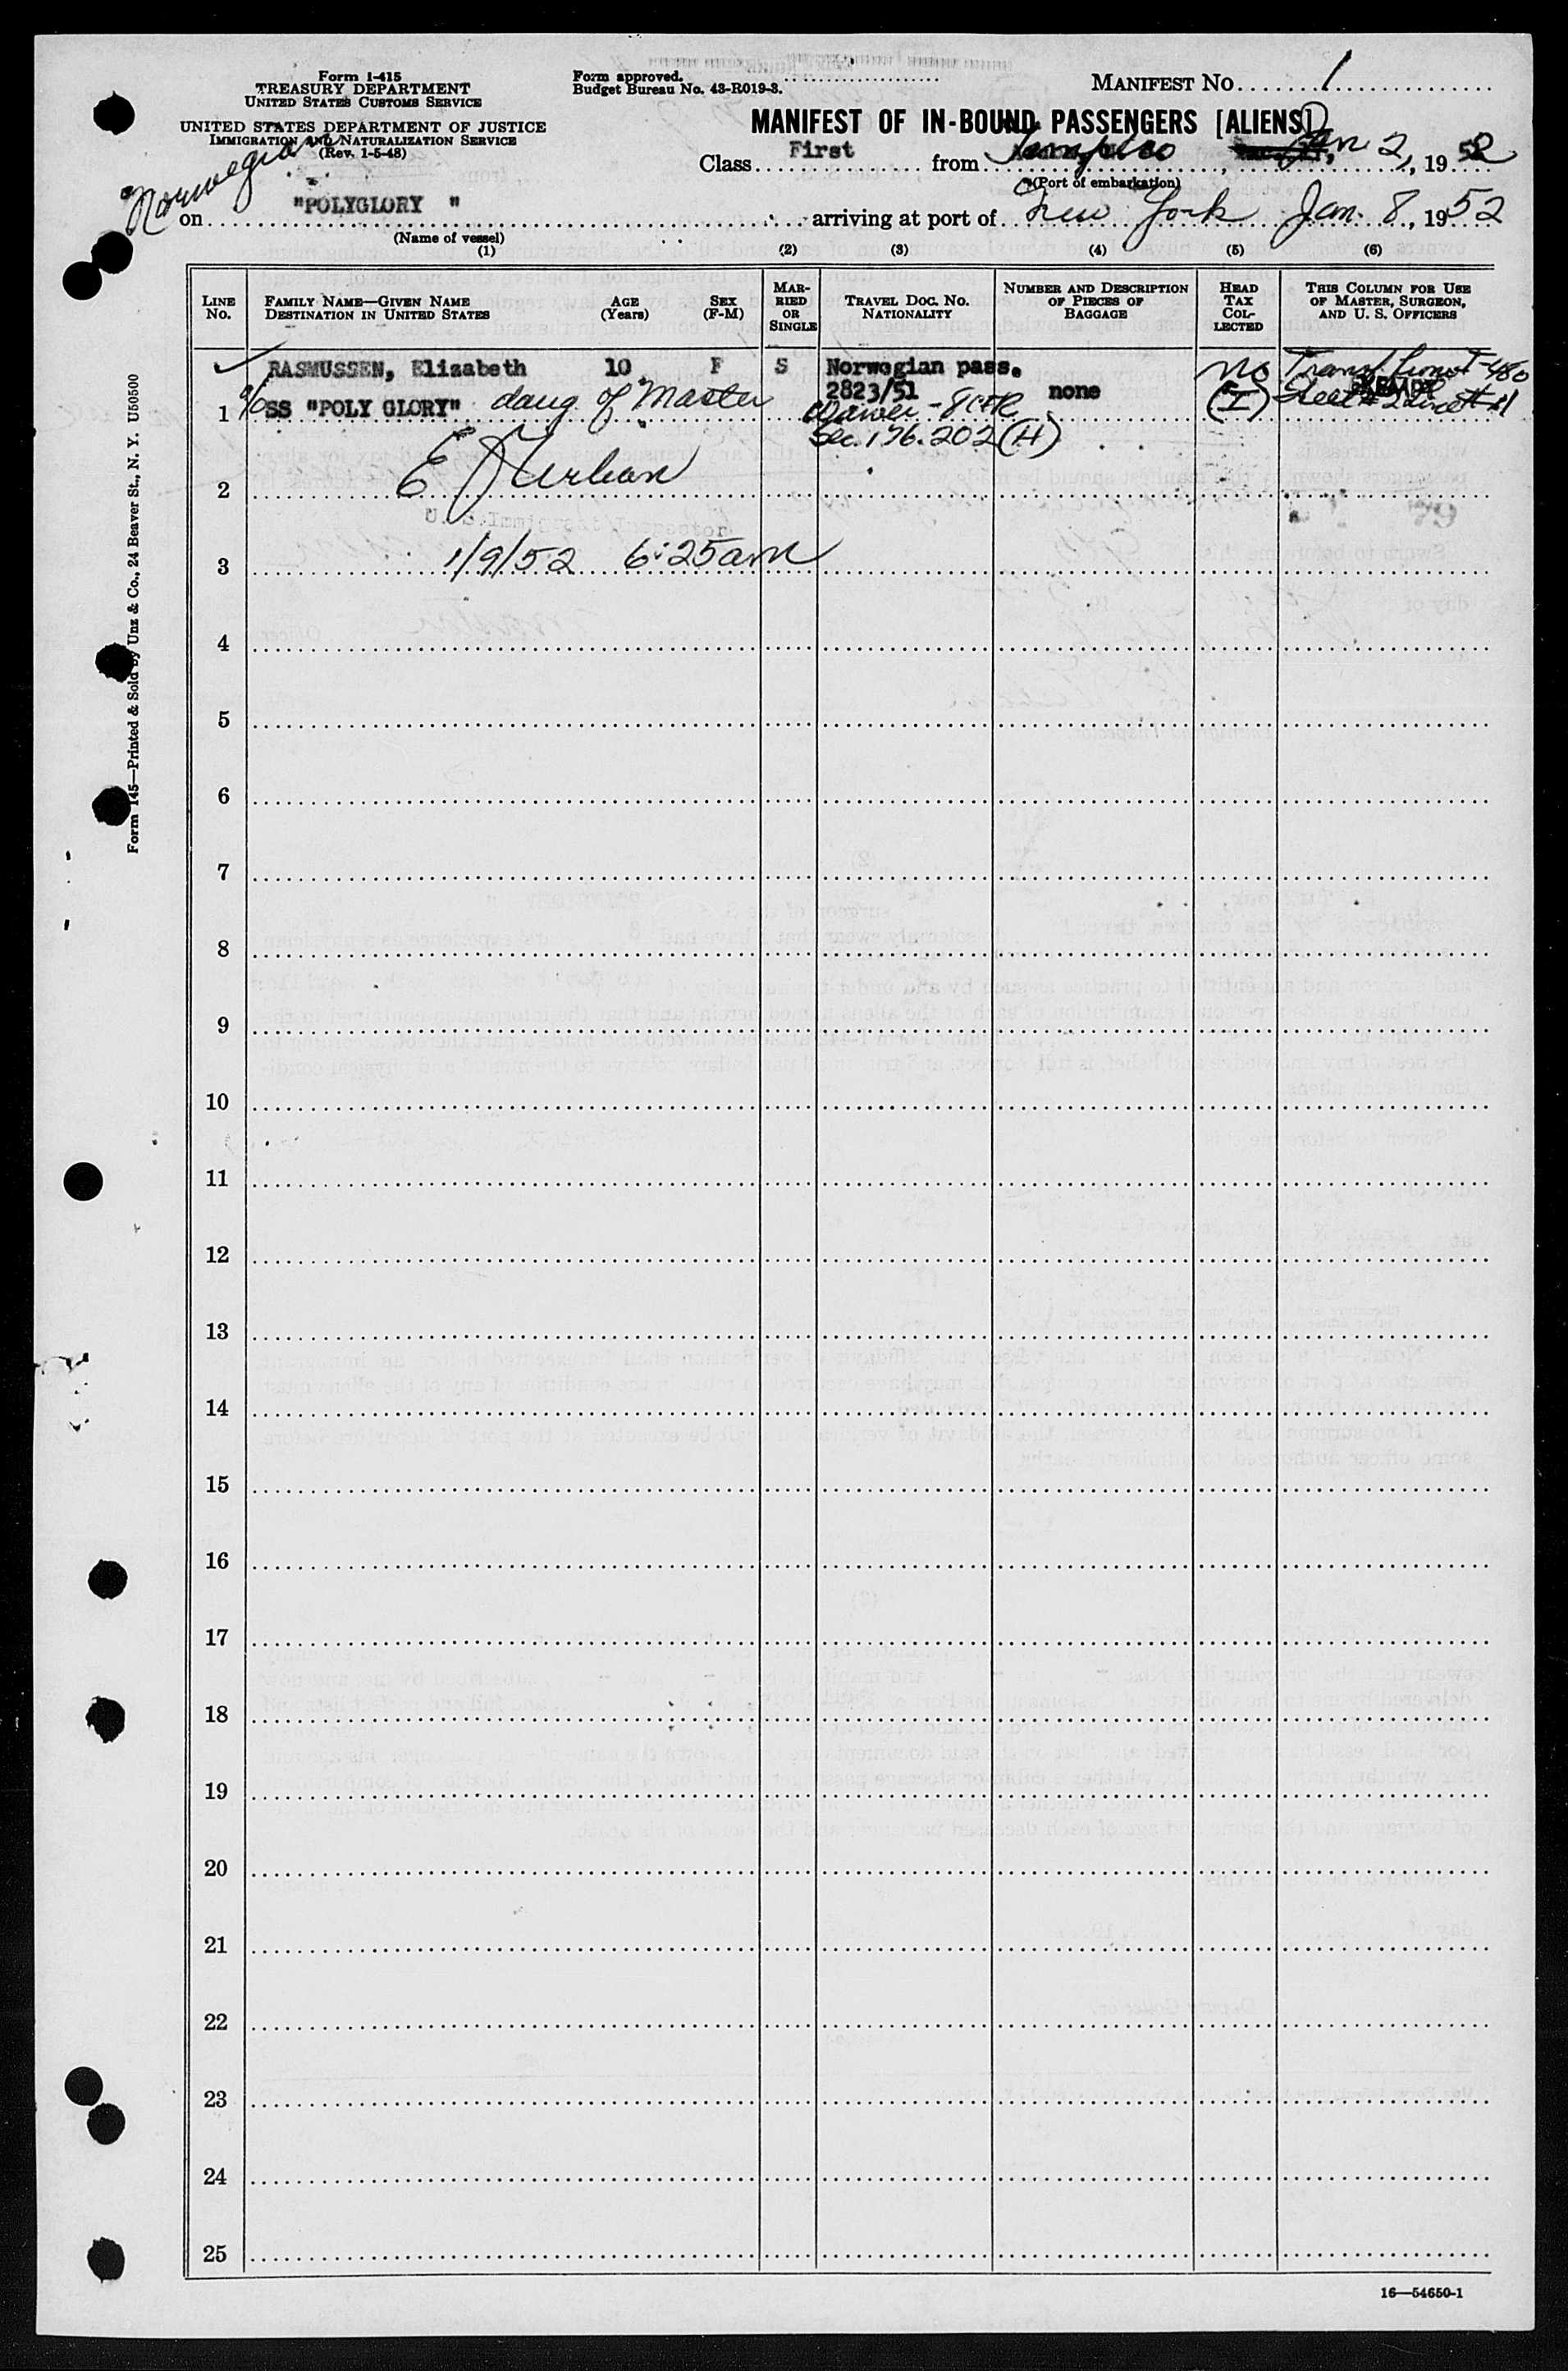 Form I-415
TREASURY DEPARTMENT
UNITED STATES CUSTOMS SERVICE
UNITED STATES DEPARTMENT OF JUSTICE
IMMIGRATION AND NATURALIZATION SERVICE
(Rev. 1-5-48)
Form approved.
Budget Bureau No. 43-R019-3.
MANIFEST NO. 1
MANIFEST OF IN-BOUND PASSENGERS [ALIENS]
Class First from Tampico, Jan 2, 1952
(Port of embarkation)
Norwegian
on "POLYGLORY " arriving at port of New York Jan. 8, 1952
(Name of vessel)
(1) (2) (3) (4) (5) (6)
LINE NO.
FAMILY NAME—GIVEN NAME
DESTINATION IN UNITED STATES
AGE (Years)
SEX (F-M)
MARRIED OR SINGLE
TRAVEL DOC. NO. NATIONALITY
NUMBER AND DESCRIPTION OF PIECES OF BAGGAGE
HEAD TAX COLLECTED
THIS COLUMN FOR USE OF MASTER, SURGEON, AND U. S. OFFICERS
RASMUSSEN, Elizabeth 10 F S Norwegian pass. no Transf. from I-480
2823/51 none
1 c/o SS "POLY GLORY" daug of Master Waiver - 8 CFR (I) Sheet #2 Line #1
Sec. 176.202 (H)
2 E Hurban
U. S. Immigrant Inspector
3 1/9/52 6:25am
4
5
6
7
8
9
10
11
12
13
14
15
16
17
18
19
20
21
22
23
24
25
Form 145—Printed & Sold by Unz & Co., 24 Beaver St., N. Y. U50500
16—54650-1